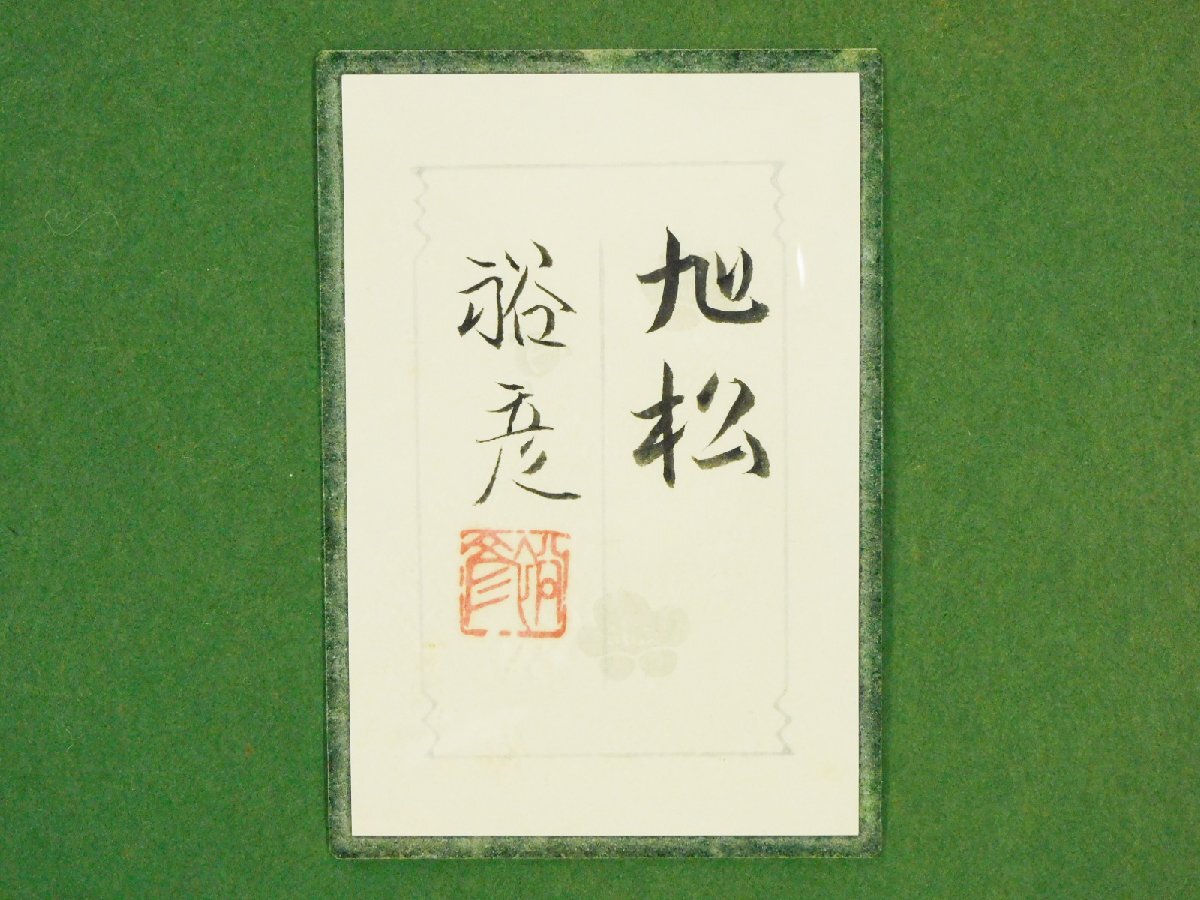 旭松
裕彦